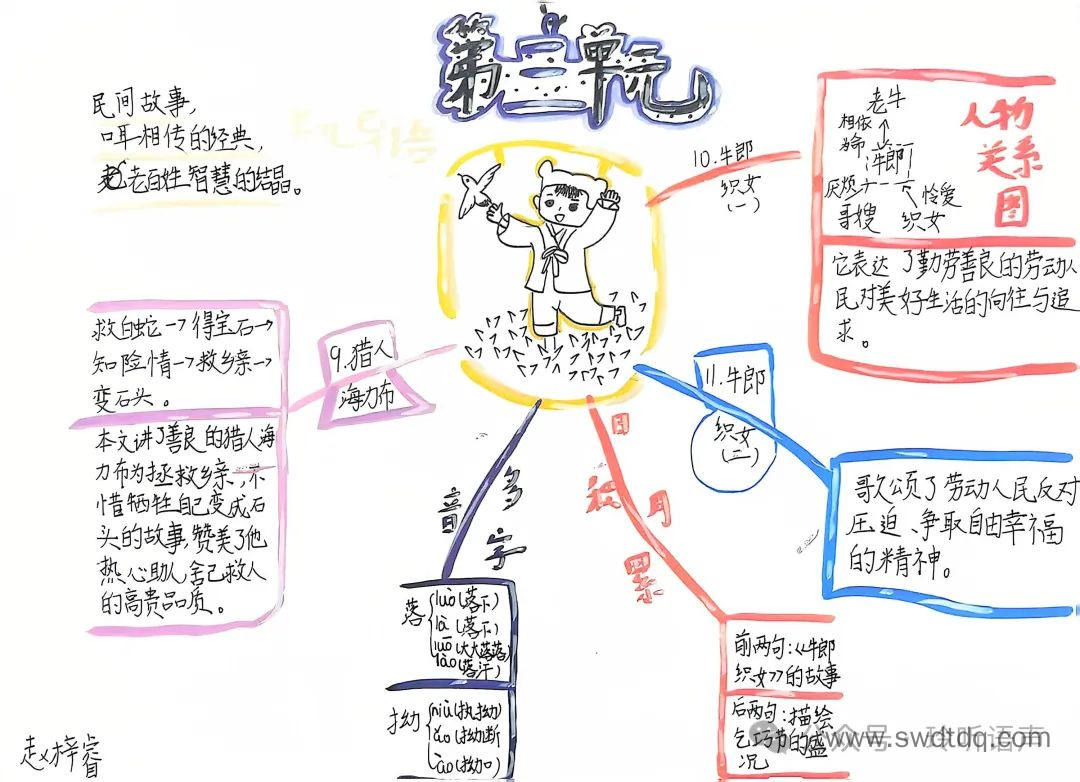 第三单元
民间故事，
口耳相传的经典，
老百姓智慧的结晶。
10.牛郎
织女
(一)
老牛
相依
为命
牛郎
厌烦
怜爱
哥嫂
织女
人物
关系
图
它表达了勤劳善良的劳动人
民对美好生活的向往与追
求。
9.猎人
海力布
救白蛇→得宝石→
知险情→救乡亲→
变石头。
本文讲了善良的猎人海
力布为拯救乡亲，不
惜牺牲自己变成石
头的故事，赞美了他
热心助人舍己救人
的高贵品质。
11.牛郎
织女
(二)
歌颂了劳动人民反对
压迫、争取自由幸福
的精神。
多音字
落
luò(落下)
là(落下)
luō(大大落落)
lào(落汗)
拗
niù(执拗)
ǎo(拗断)
ào(拗加)
日积月累
前两句：《牛郎
织女》的故事
后两句：描绘
乞巧节的盛
况
赵梓睿
公众号
www.swdtdq.com